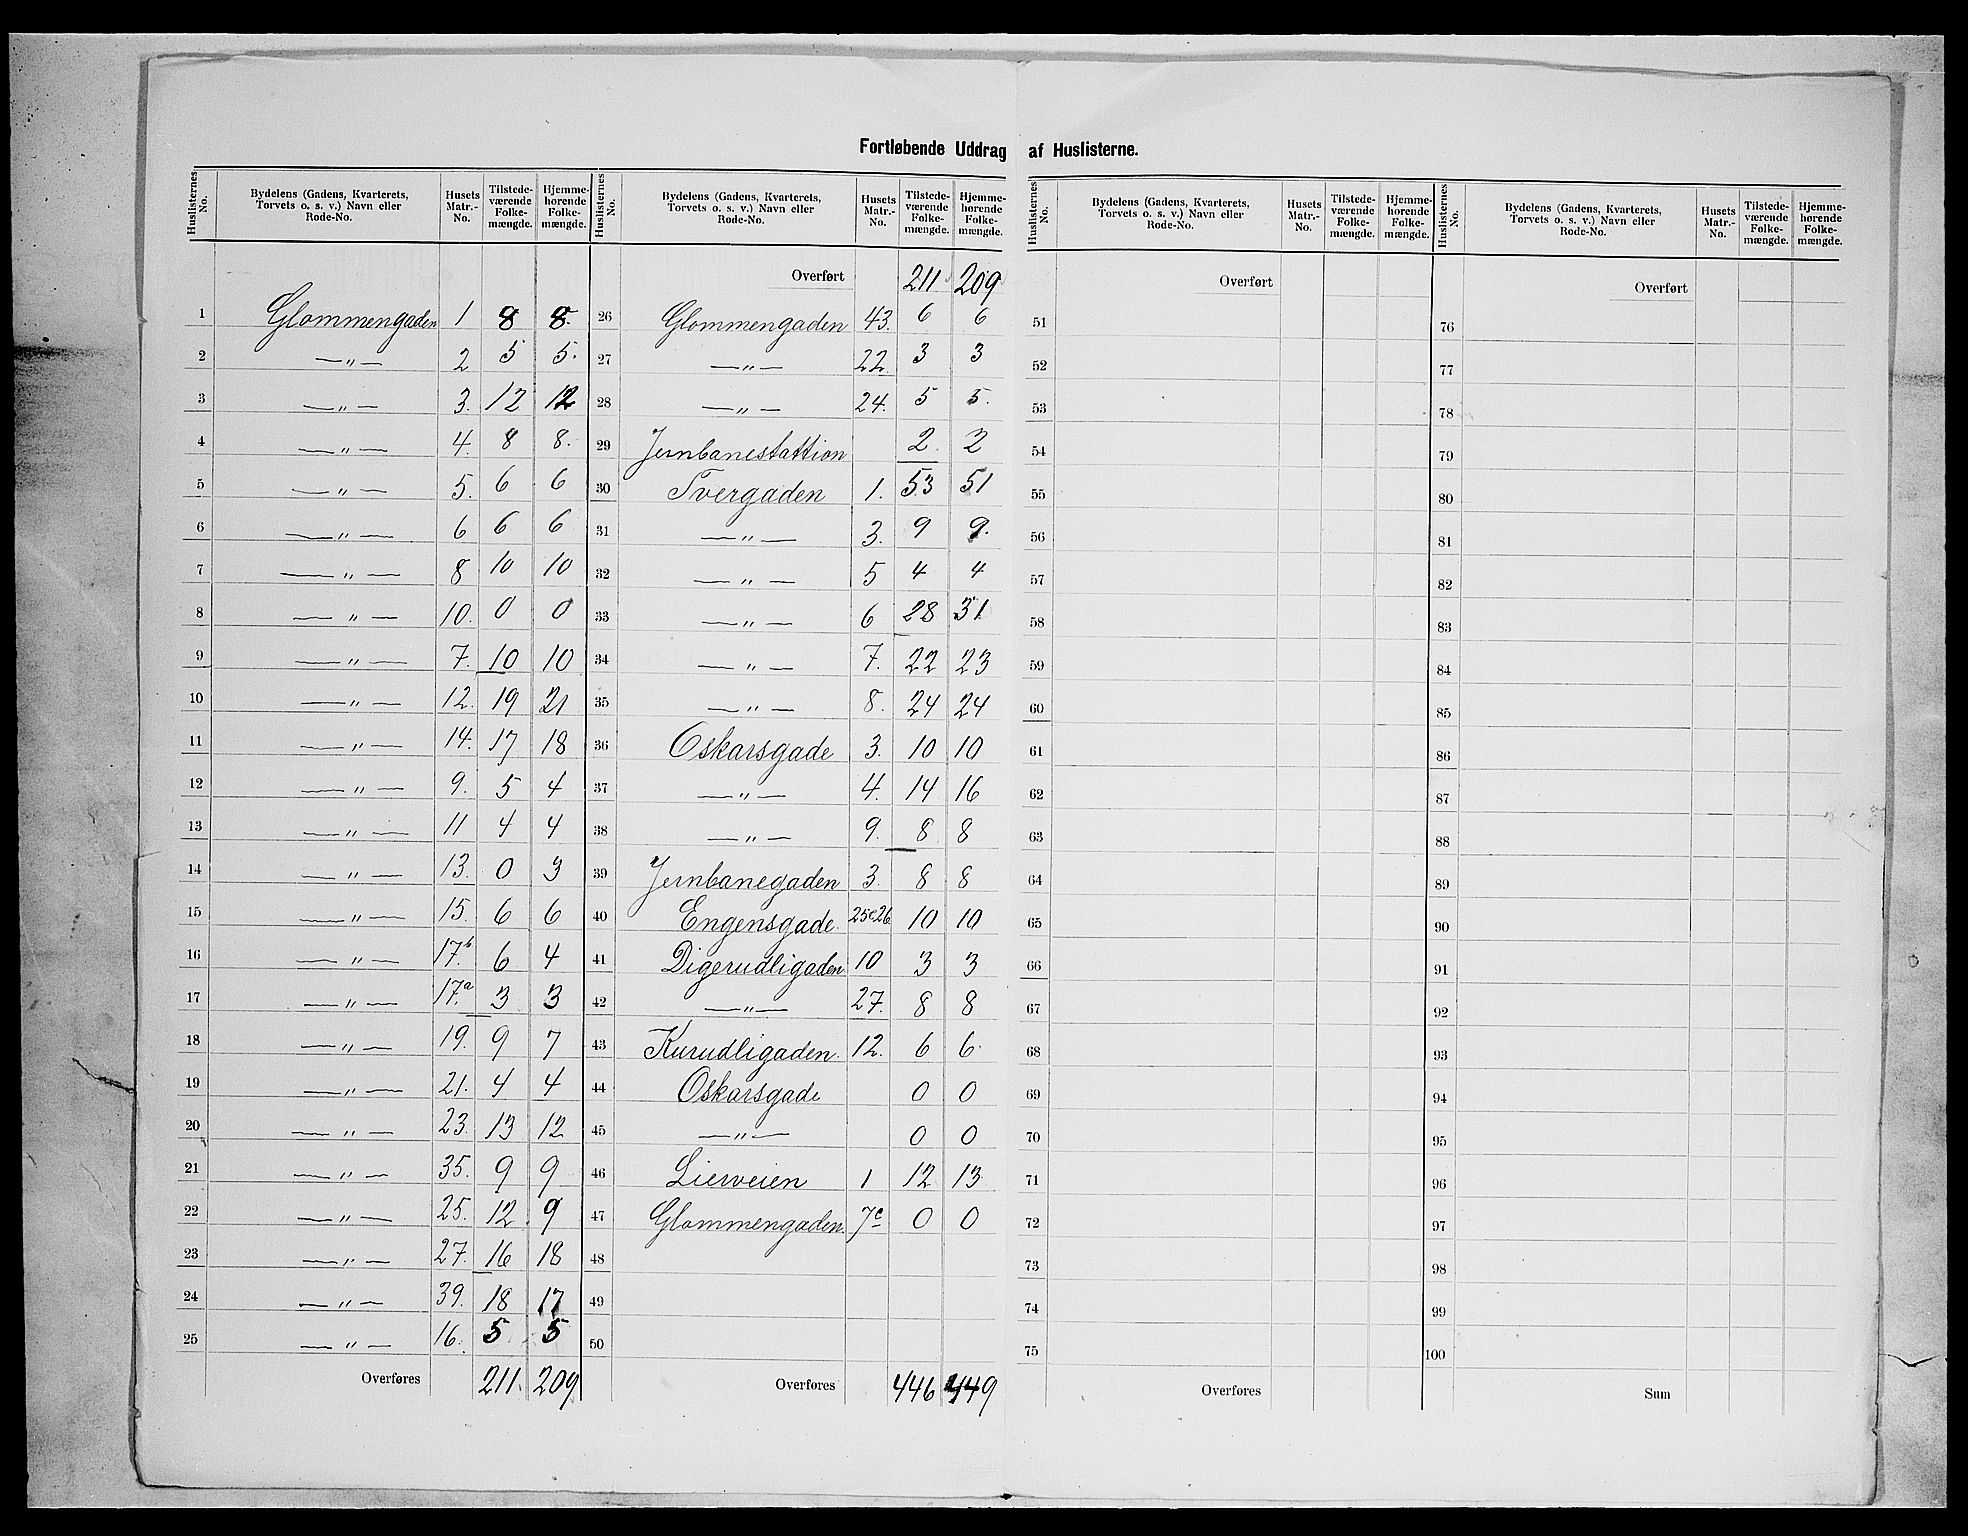 Fortløbende Uddrag af Huslisterne.
Huslisternes No. Bydelens (Gadens, Kvarterets, Torvets o. s. v.) Navn eller Rode-No. Husets Matr.-No. Tilstedeværende Folkemængde. Hjemmehørende Folkemængde.
1 Glommengaden 1 8 8.
2 —„— 2 5 5.
3 —„— 3. 12 12
4 —„— 4. 8 8.
5 —„— 5. 6 6
6 —„— 6 6 6
7 —„— 8 10 10
8 —„— 10. 0 0
9 —„— 7. 10 10
10 —„— 12. 19 21
11 —„— 14. 17 18
12 —„— 9. 5 4
13 —„— 11 4 4
14 —„— 13. 0 3
15 —„— 15. 6 6
16 —„— 17.b 6 4
17 —„— 17.a 3 3
18 —„— 19. 9 7
19 —„— 21. 4 4
20 —„— 23. 13 12
21 —„— 35. 9 9
22 —„— 25. 12 9
23 —„— 27. 16 18
24 —„— 39. 18 17
25 —„— 16. 5 5
Overføres 211. 209
Huslisternes No. Bydelens (Gadens, Kvarterets, Torvets o. s. v.) Navn eller Rode-No. Husets Matr.-No. Tilstedeværende Folkemængde. Hjemmehørende Folkemængde.
Overført 211 209
26 Glommengaden 43. 6 6
27 —„— 22. 3 3
28 —„— 24. 5 5.
29 Jernbanestattion 2. 2
30 Tvergaden 1. 53 51
31 —„— 3. 9 9.
32 —„— 5 4 4
33 —„— 6 28 31
34 —„— 7. 22 23
35 —„— 8. 24 24
36 Oskarsgade 3. 10 10
37 —„— 4. 14 16
38 —„— 9. 8 8
39 Jernbanegaden 3. 8 8
40 Engensgade. 25c26 10 10
41 Digerudligaden 10 3 3
42 —„— 27. 8 8
43 Kurudligaden. 12. 6 6.
44 Oskarsgade 0 0
45 —„— 0 0
46 Lierveien 1 12 13
47 Glommengaden. 7c 0 0
48
49
50
Overføres 446 449
Huslisternes No. Bydelens (Gadens, Kvarterets, Torvets o. s. v.) Navn eller Rode-No. Husets Matr.-No. Tilstedeværende Folkemængde. Hjemmehørende Folkemængde.
Overført
51
52
53
54
55
56
57
58
59
60
61
62
63
64
65
66
67
68
69
70
71
72
73
74
75
Overføres
Huslisternes No. Bydelens (Gadens, Kvarterets, Torvets o. s. v.) Navn eller Rode-No. Husets Matr.-No. Tilstedeværende Folkemængde. Hjemmehørende Folkemængde.
Overført
76
77
78
79
80
81
82
83
84
85
86
87
88
89
90
91
92
93
94
95
96
97
98
99
100
Sum